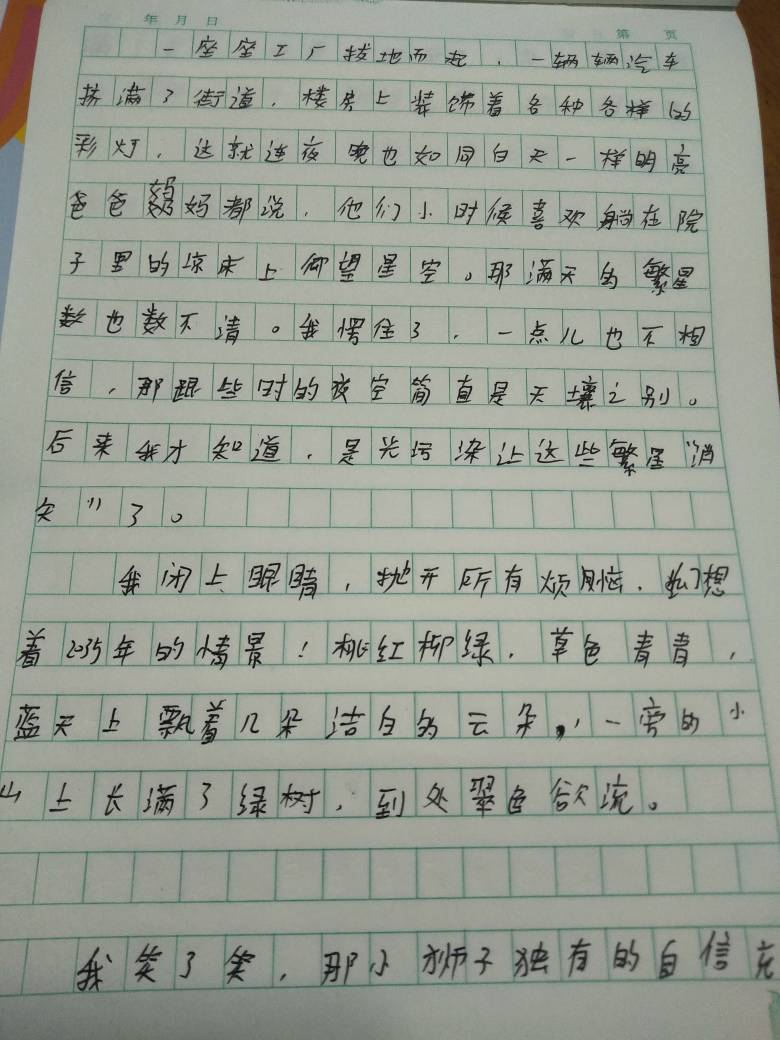 年 月 日
第 页
一座座工厂拔地而起，一辆辆汽车
挤满了街道，楼房上装饰着各种各样的
彩灯，这就连夜晚也如同白天一样明亮
爸爸妈妈都说，他们小时候喜欢躺在院
子里的凉床上仰望星空。那满天的繁星
数也数不清。我愣住了，一点儿也不相
信，那跟些时的夜空简直是天壤之别。
后来我才知道，是光污染让这些繁星“消
失”了。
我闭上眼睛，抛开所有烦恼，幻想
着2035年的情景！桃红柳绿，草色青青，
蓝天上飘着几朵洁白的云朵，一旁的小
山上长满了绿树，到处翠色欲流。
我笑了笑，那小狮子独有的自信充